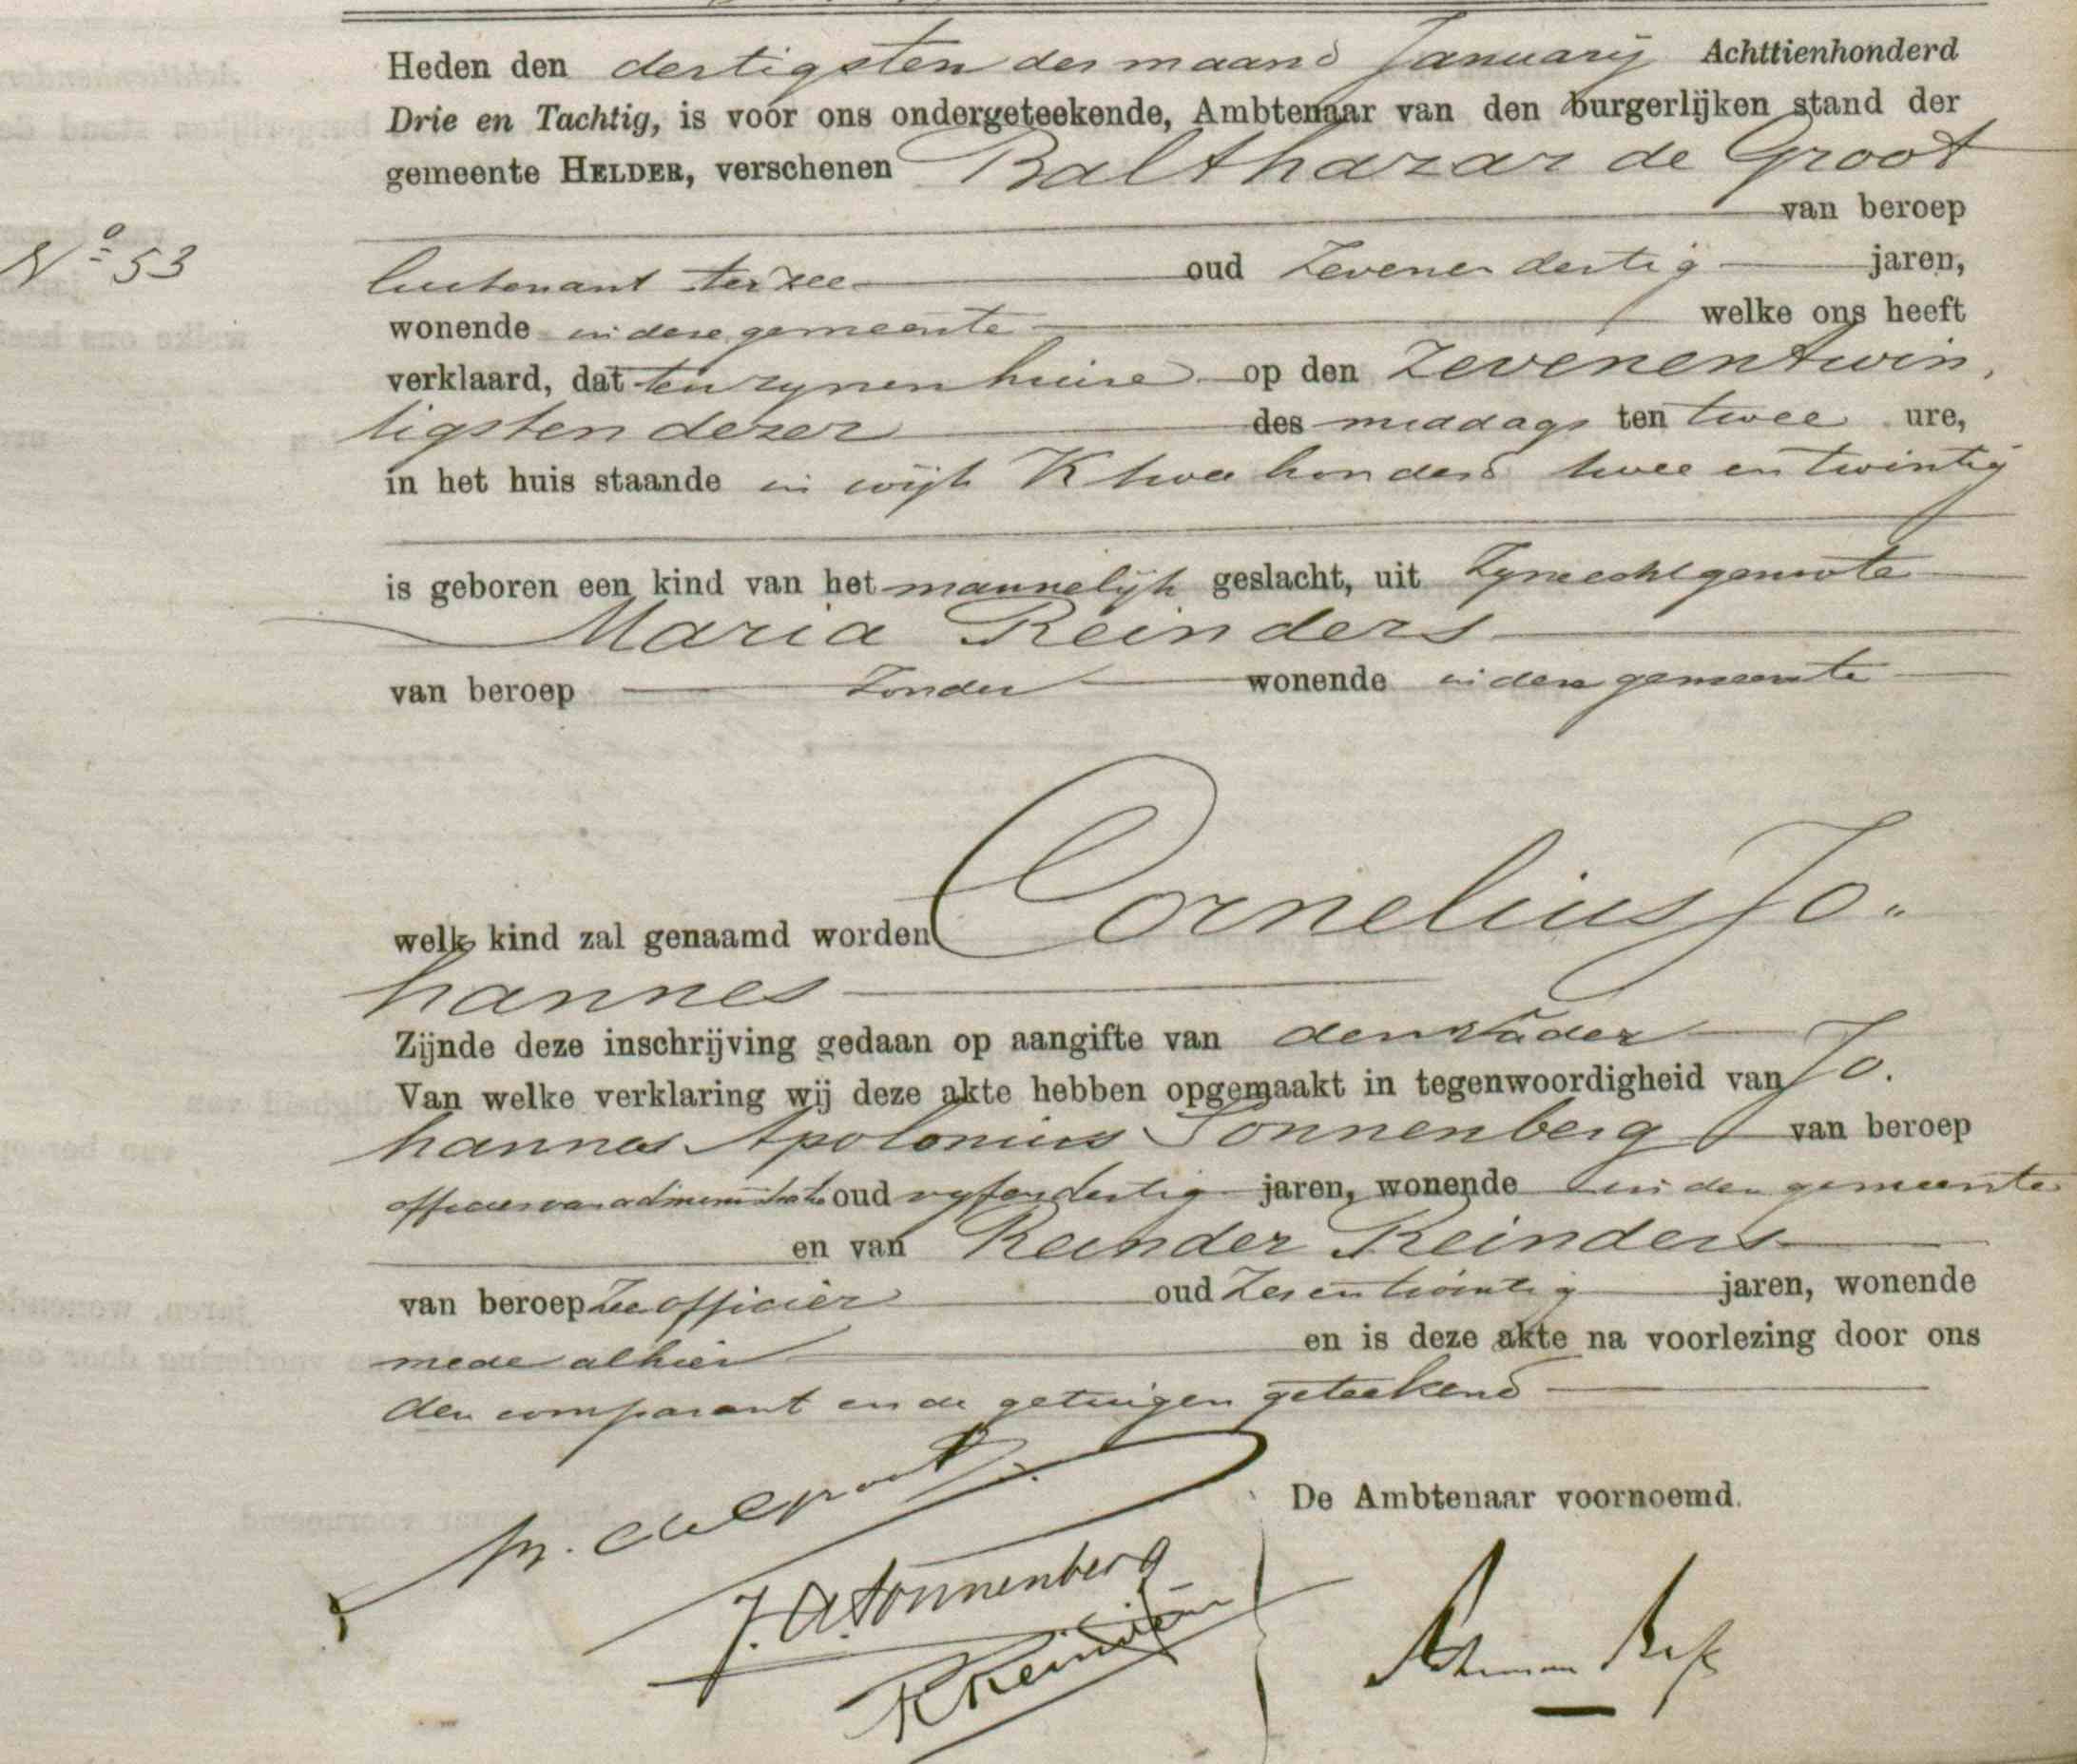 Heden den dertigsten der maand January Achttienhonderd
Drie en Tachtig, is voor ons ondergeteekende, Ambtenaar van den burgerlijken stand der
gemeente HELDER, verschenen Balthazar de Groot
van beroep
No 53
luitenant ter zee oud zevenendertig jaren,
wonende in deze gemeente welke ons heeft
verklaard, dat ten zynen huize op den zevenentwin
tigsten dezer des middags ten twee ure,
in het huis staande in wijk K twee honderd twee en twintig
is geboren een kind van het mannelijk geslacht, uit zyne echtgenoote
Maria Reinders
van beroep zonder wonende in deze gemeente
welk kind zal genaamd worden Cornelius Jo„
hannes
Zijnde deze inschrijving gedaan op aangifte van den vader
Van welke verklaring wij deze akte hebben opgemaakt in tegenwoordigheid van Jo.
hannes Apolonius Sonnenberg van beroep
officier van administratie oud vyfendertig jaren, wonende in deze gemeente
en van Reinder Reinders
van beroep zeeofficier oud zesentwintig jaren, wonende
mede alhier en is deze akte na voorlezing door ons
den comparant en de getuigen geteekend
de Groot
De Ambtenaar voornoemd.
J. A. Sonnenberg
R Reinders